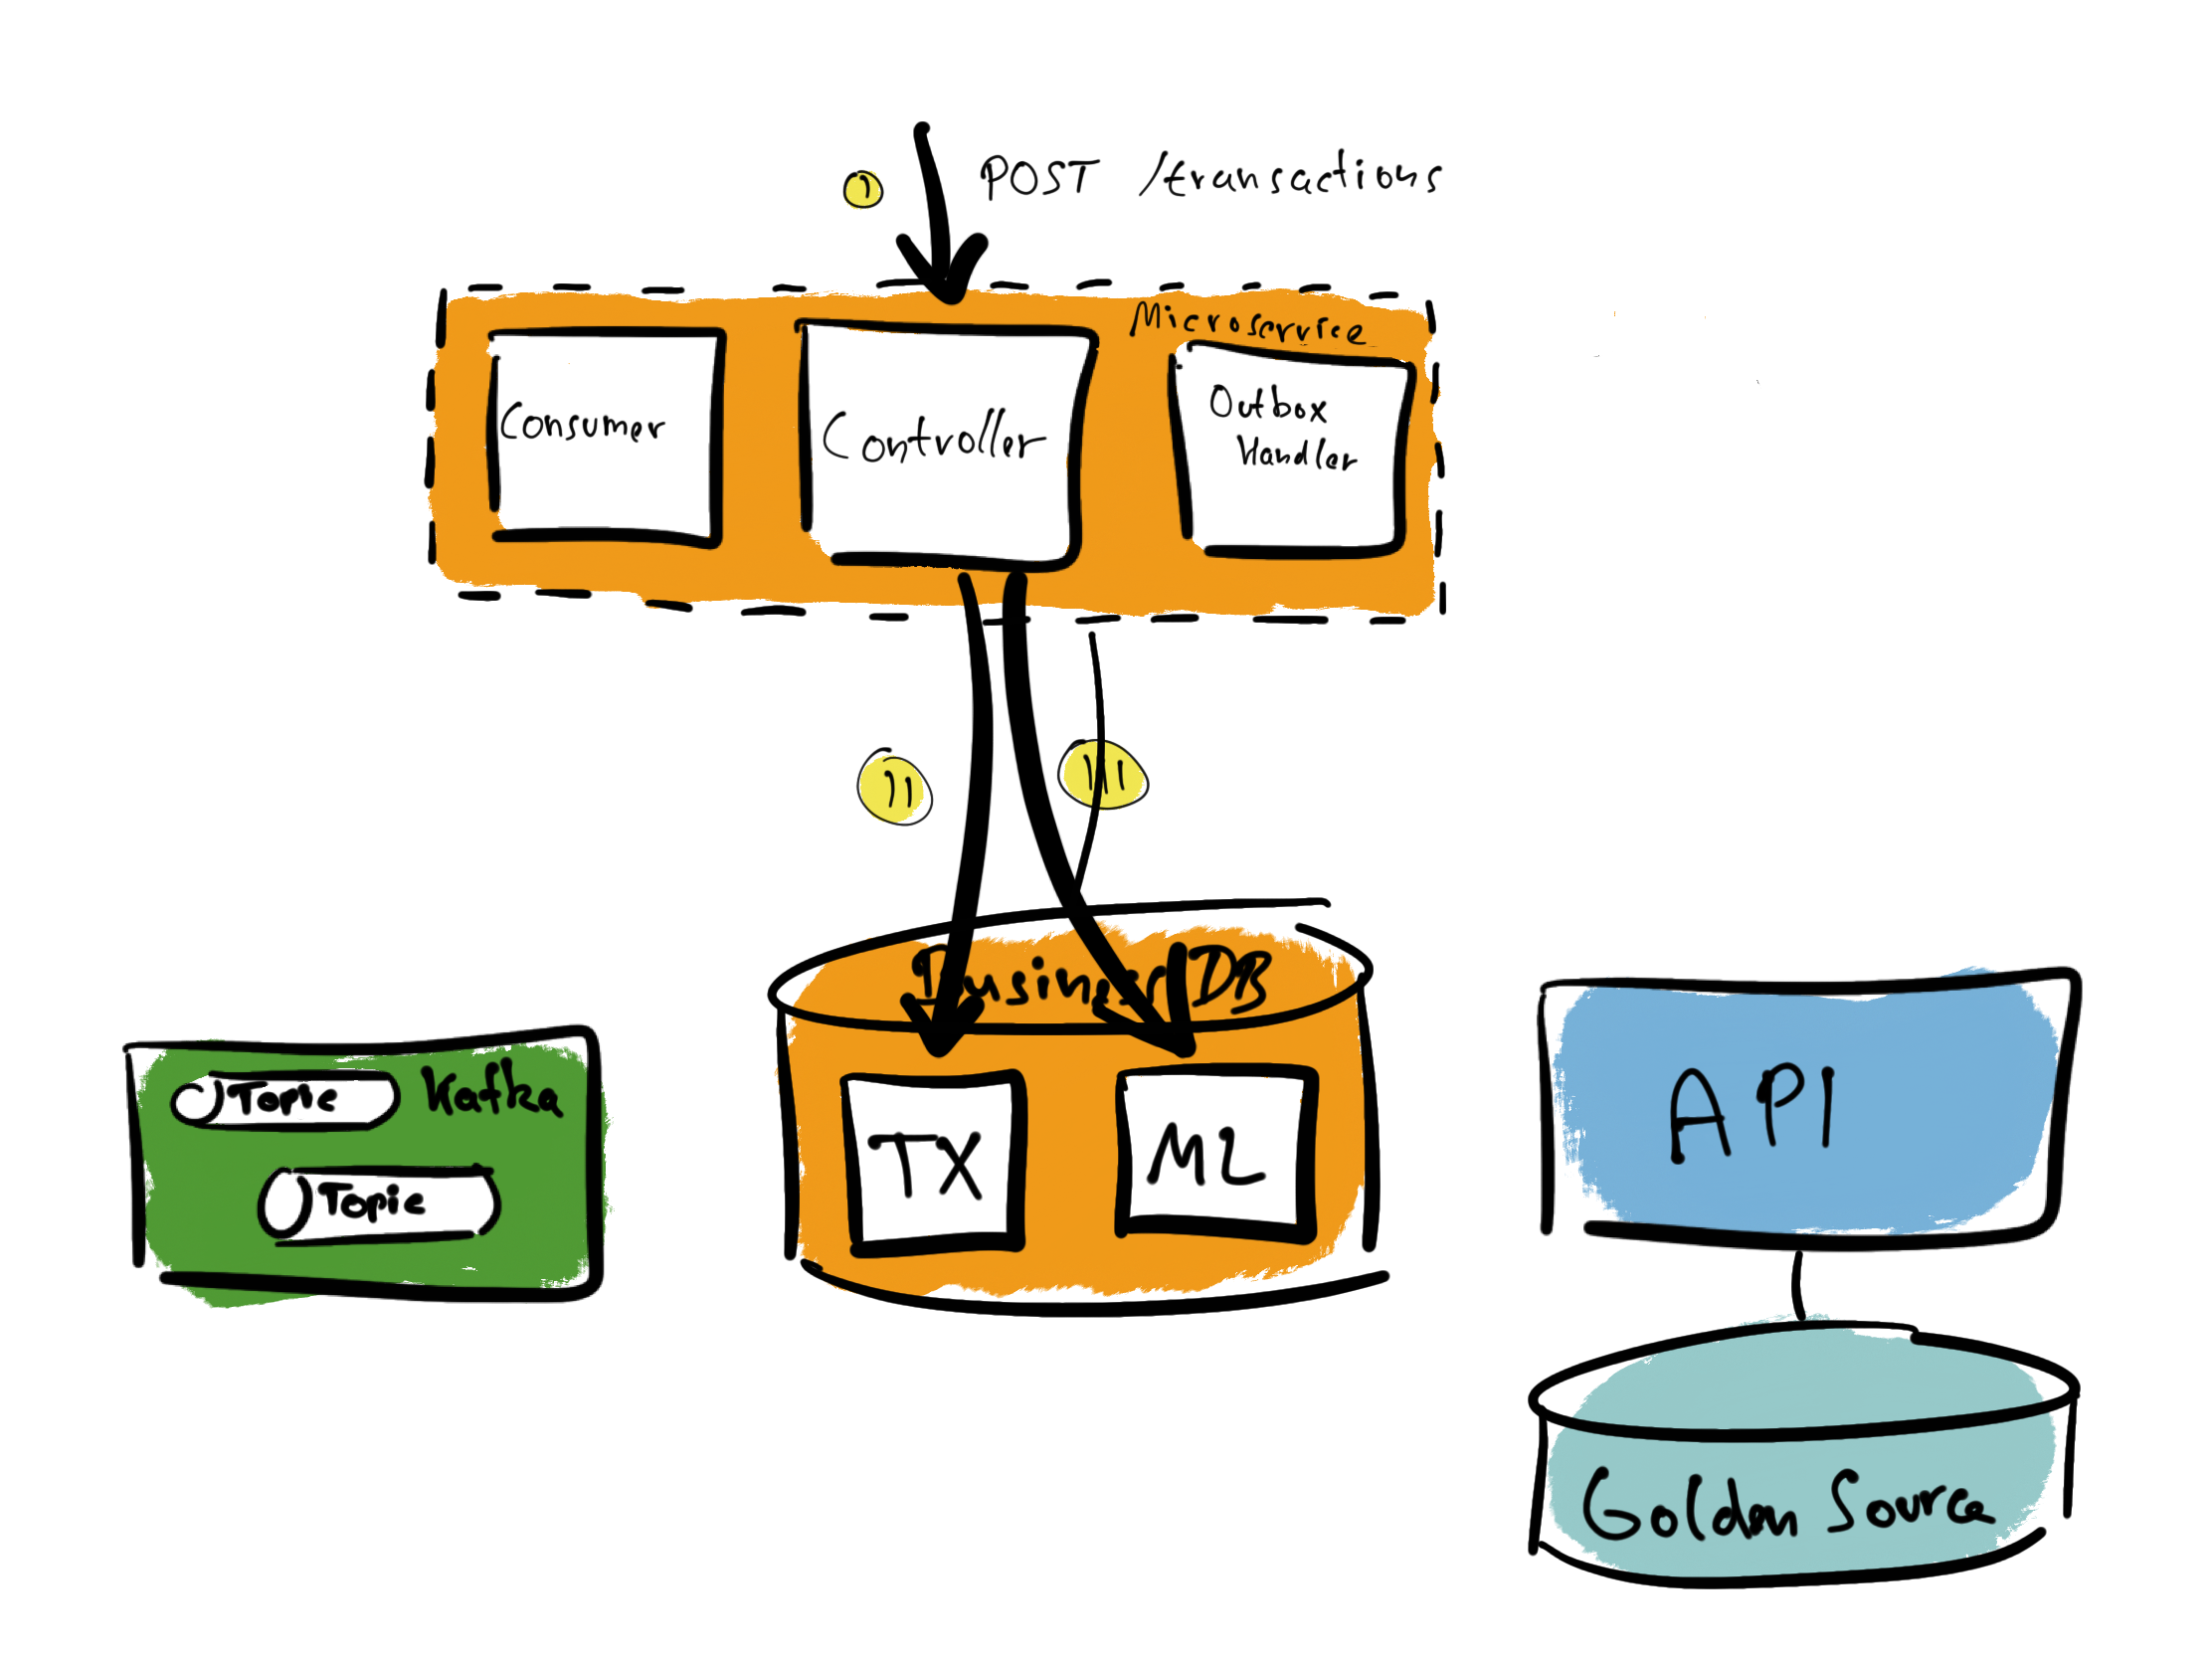 I
POST /transactions
Microservice
Consumer
Controller
Outbox
Handler
II
III
Business DB
TX
M2
Topic
Kafka
Topic
API
Golden Source